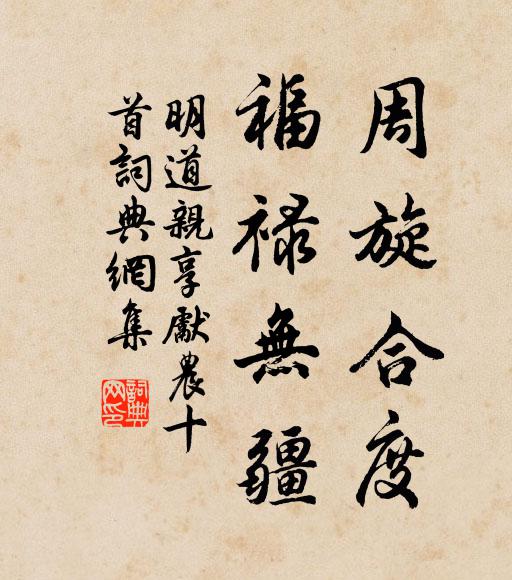 周旋合度
福祿無疆
明道親享獻農十
首詞典網集
詞典
网印